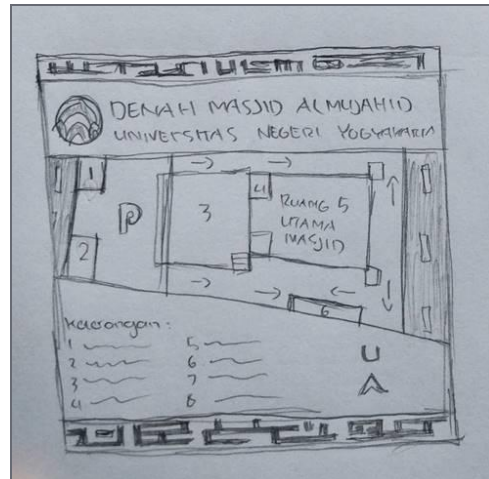 DENAH MASJID ALMUJAHID
UNIVERSITAS NEGERI YOGYAKARTA
1
P
2
3
4
RUANG 5
UTAMA
MASJID
6
Keterangan:
1
2
3
4
5
6
7
8
U